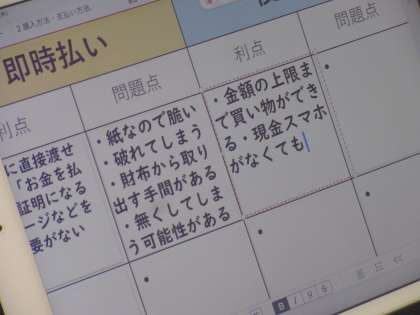 2 購入方法・支払い方法
即時払い
利点
問題点
利点
問題点
に直接渡せ
「お金を払
証明になる
ージなどを
要がない
・紙なので脆い
・破れてしまう
・財布から取り
出す手間がある
・無くしてしま
う可能性がある
・金額の上限ま
で買い物ができ
る・現金スマホ
がなくても
・
・
・
・
B I U S